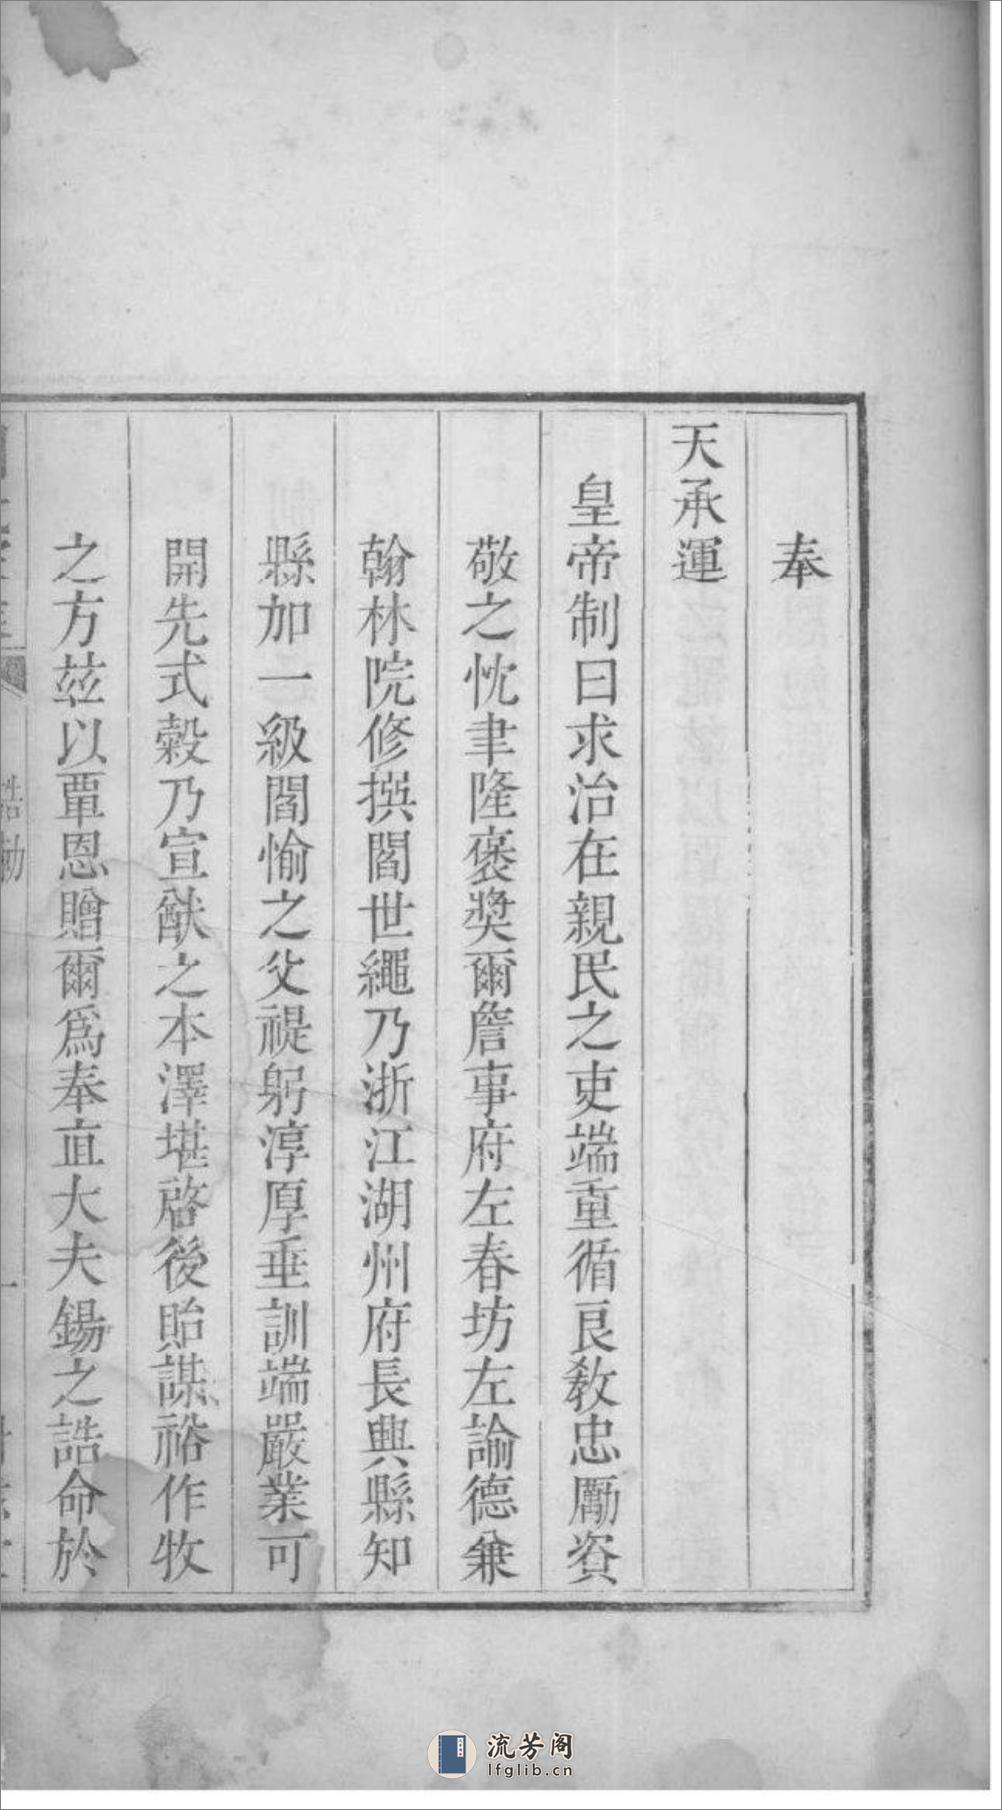 奉
天承運
皇帝制曰求治在親民之吏端重循良敎忠勵資
敬之忱聿隆褒奬爾詹事府左春坊左諭德兼
翰林院修撰閻世繩乃浙江湖州府長興縣知
縣加一級閻愉之父禔躬淳厚垂訓端嚴業可
開先式穀乃宣猷之本澤堪啓後貽謀裕作牧
之方玆以覃恩贈爾爲奉直大夫錫之誥命於
誥勅
一
流芳阁
lfglib.cn